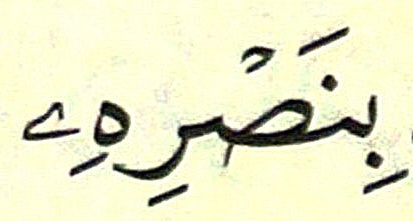 بِنَصْرِهِۦ